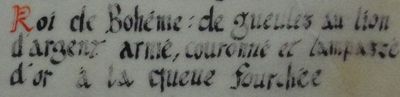 Roi de Bohême : de gueules au lion
d'argent armé, couronné et lampassé
d'or à la queue fourchée